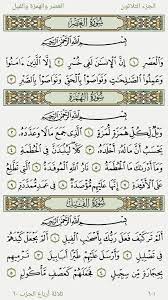 الجزء الثلاثون العصر والهمزة والفيل
سُورَةُ العَصْرِ
بِسْمِ ٱللَّهِ ٱلرَّحْمَٰنِ ٱلرَّحِيمِ
وَٱلْعَصْرِ ١ إِنَّ ٱلْإِنسَٰنَ لَفِى خُسْرٍ ٢ إِلَّا ٱلَّذِينَ ءَامَنُوا۟
وَعَمِلُوا۟ ٱلصَّٰلِحَٰتِ وَتَوَاصَوْا۟ بِٱلْحَقِّ وَتَوَاصَوْا۟ بِٱلصَّبْرِ ٣
سُورَةُ الهُمَزَةِ
بِسْمِ ٱللَّهِ ٱلرَّحْمَٰنِ ٱلرَّحِيمِ
وَيْلٌ لِّكُلِّ هُمَزَةٍ لُّمَزَةٍ ١ ٱلَّذِى جَمَعَ مَالًا وَعَدَّدَهُۥ ٢
يَحْسَبُ أَنَّ مَالَهُۥٓ أَخْلَدَهُۥ ٣ كَلَّا ۖ لَيُنۢبَذَنَّ فِى ٱلْحُطَمَةِ ٤
وَمَآ أَدْرَىٰكَ مَا ٱلْحُطَمَةُ ٥ نَارُ ٱللَّهِ ٱلْمُوقَدَةُ ٦ ٱلَّتِى تَطَّلِعُ
عَلَى ٱلْأَفْـِٔدَةِ ٧ إِنَّهَا عَلَيْهِم مُّؤْصَدَةٌ ٨ فِى عَمَدٍ مُّمَدَّدَةٍۭ ٩
سُورَةُ الفِيلِ
بِسْمِ ٱللَّهِ ٱلرَّحْمَٰنِ ٱلرَّحِيمِ
أَلَمْ تَرَ كَيْفَ فَعَلَ رَبُّكَ بِأَصْحَٰبِ ٱلْفِيلِ ١ أَلَمْ يَجْعَلْ كَيْدَهُمْ
فِى تَضْلِيلٍ ٢ وَأَرْسَلَ عَلَيْهِمْ طَيْرًا أَبَابِيلَ ٣ تَرْمِيهِم
بِحِجَارَةٍ مِّن سِجِّيلٍ ٤ فَجَعَلَهُمْ كَعَصْفٍ مَّأْكُولٍۭ ٥
٦٠١ ثلاثة أرباع الحزب ٦٠